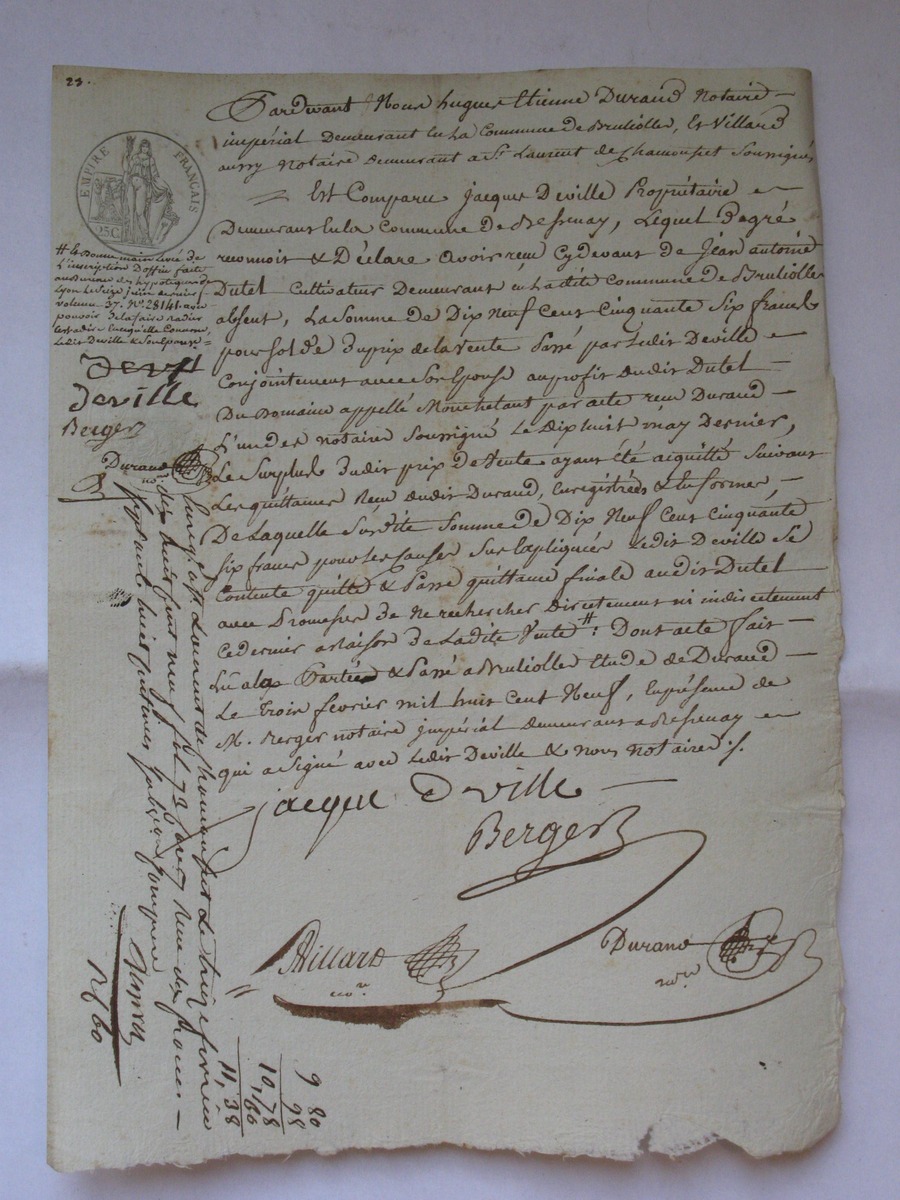 23.
EMPIRE FRANÇAIS
25C
Pardevant Nous hugues Etienne Durand Notaire
impérial Demeurant En La Commune de Brulliolle, Et Villard
aussy Notaire demeurant a St. Laurent de Chamousset Soussignés
Est Comparu Jacques Deville Propriétaire
Demeurant En la Commune de Bessenay, Lequel De gré
reconnoit & Déclare avoir reçu Cydevant de Jean antoine
Dutel Cultivateur Demeurant En La dite Commune de Brulliolle
absent, La Somme de Dix Neuf Cent Cinquante Six francs
pour Solde Du prix de la vente Passé par Ledit Deville
Conjointement avec Son Epouse au profit Dudit Dutel
Du Domaine appellé Mouchetant par acte reçu Durand
L'un des notaire Soussigné Le dix huit may Dernier,
Le Surplus Dudit prix de Vente ayant Été aquitté Suivant
Les quittances Reçu Dudit Durand, Enregistrées & En forme,
De Laquelle Susdite Somme de Dix Neuf Cent Cinquante
Six francs pour Les Causes Sus Expliquées Ledit Deville Se
Contente quitte & Passe quittance finale audit Dutel
avec Promesse de Ne rechercher Directement ni indirectement
Ce dernier a Raison de Ladite Vente #: Dont acte fait
Lu aux Parties & Passé a Brulliolle Etude de Durand
Le trois février mil huit Cent Neuf, En présence de
M. Berger notaire impérial demeurant a Bessenay
qui a Signé avec Ledit Deville & nous notaires ./.
jacque Deville
Berger
Villard
nore
Durand
nore
# & Donne main Levée de
L'inscription D'office faite
au Bureau des hypothèques de
Lyon Le Seize juin dernier
volume 37. No. 28141. avec
pouvoir De la faire radier
Ledit Deville & Son Epouse
Deville
Berger
Durand
nore
Enregistré a St Laurent de Chamousset Le treize février
dix huit cent neuf fol. 73 Reçu dix francs
soixante huit centimes
1560
9 80
98
10,78
,60
11,38